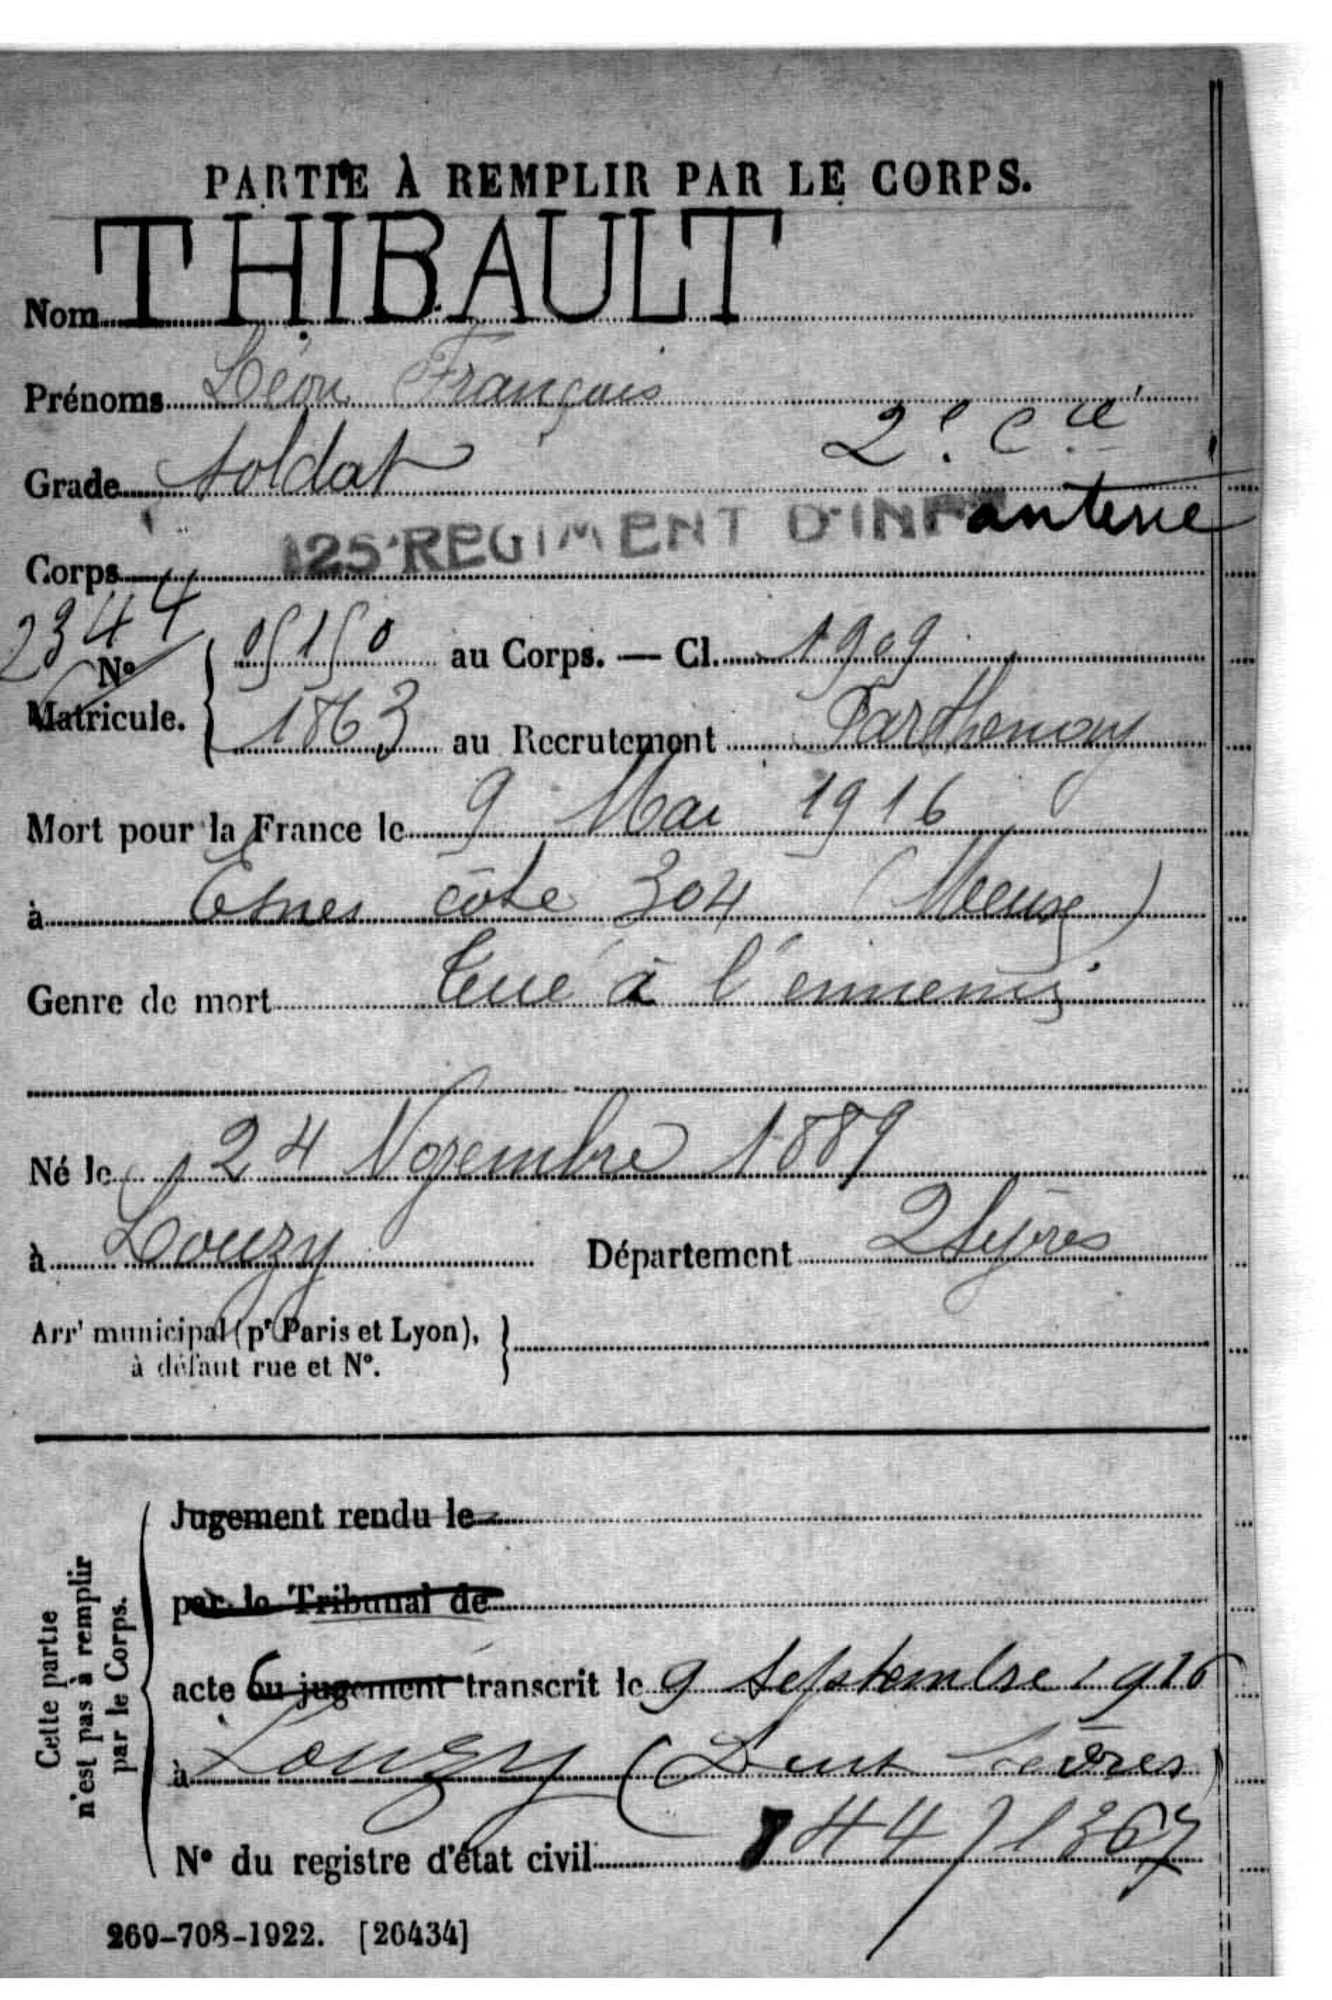 PARTIE À REMPLIR PAR LE CORPS.
Nom THIBAULT
Prénoms Léon François
Grade soldat 2e Cie
Corps 125e REGIMENT D'INFanterie
2344
N° Matricule. 05150 au Corps. — Cl. 1909
1863 au Recrutement Parthenay
Mort pour la France le 9 Mai 1916
à Esnes côte 304 (Meuse)
Genre de mort Tué à l'ennemi
Né le 24 Novembre 1889
à Louzy Département 2 Sèvres
Arrt municipal (pr Paris et Lyon),
à défaut rue et N°.
Cette partie n'est pas à remplir par le Corps.
Jugement rendu le
par le Tribunal de
acte ou jugement transcrit le 9 Septembre 1916
à Louzy (Deux Sèvres)
N° du registre d'état civil 44/1367
269-708-1922. [26434]